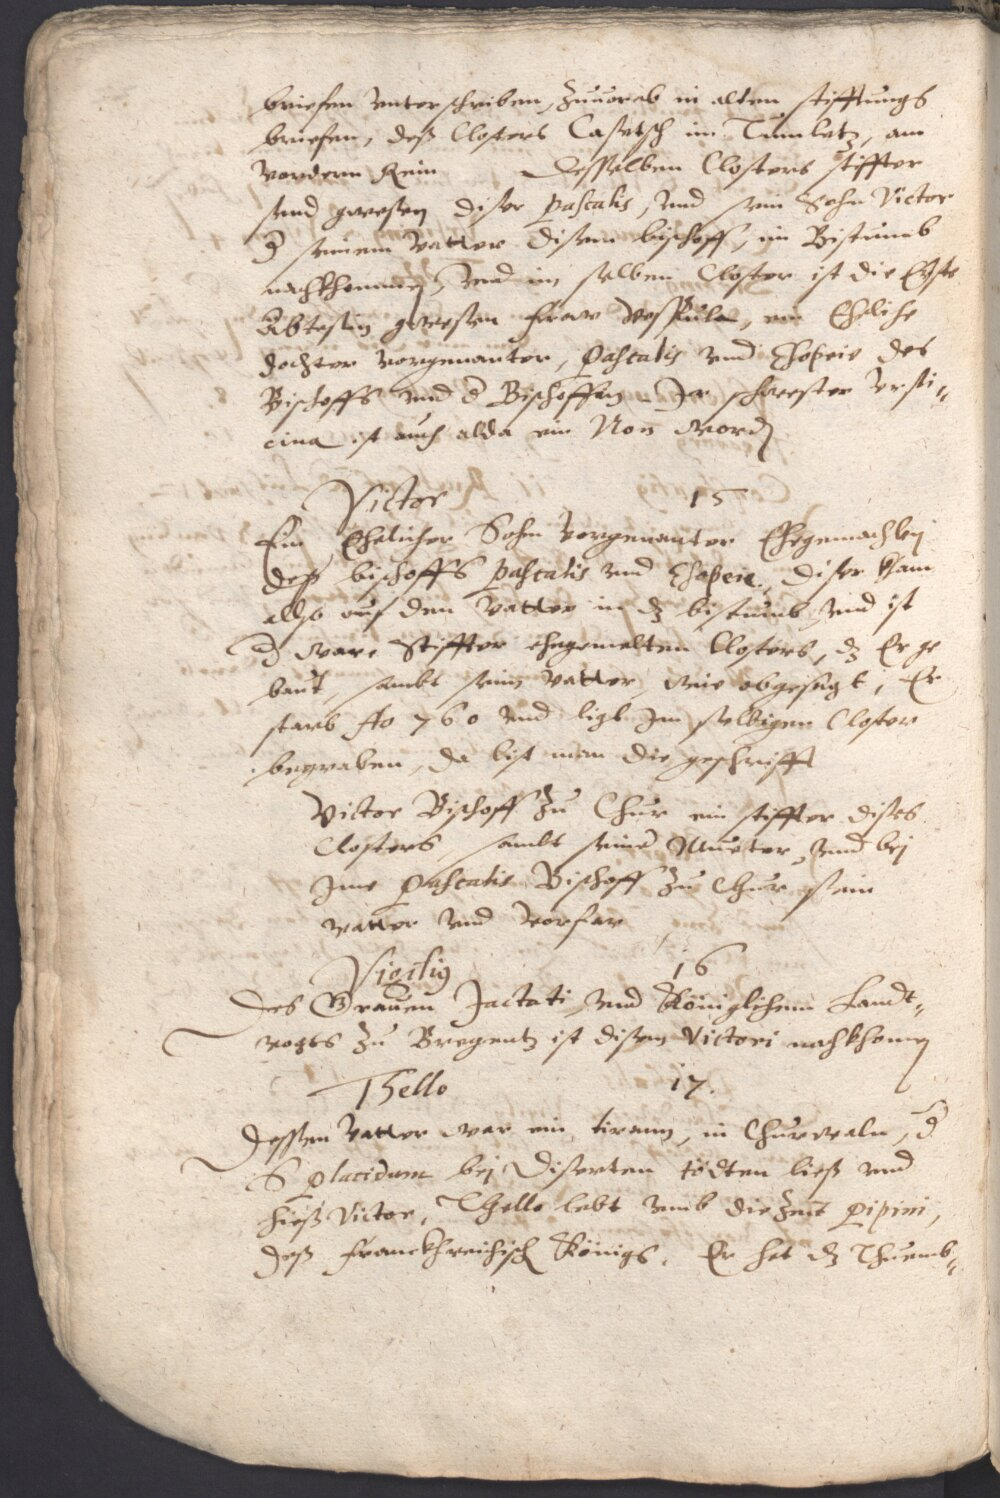 briefen underschriben, Zuuorab in alten stifftungs
briefen, deß Closters Casetsch im Tumletz, am
vordern Rein desselben Closters stiffter
sind gwesen diser Pascalis, und sein Sohn Victor
d seinem vatter disem bischoff, im Bistumb
nachkhommen, und im selben Closter ist die Erste
Abtesin gwesen fraw Vespula, ein Eheliche
dochter vorgenanter, Pascalis und Esopeie des
Bischoffs und d Bischoffin Ir schwester Vrsi-
cina ist auch alda ein Non worden
Victor 15
Ein Ehelicher Sohn vorgenanter Ehegemachlen
deß bischoffs Pascalis und Esopeie, diser kam
also auf den vatter in dz bistumb und ist
d ware Stiffter ehegemelten Closters, dz Er ge
baut, sambt seim vatter, wie obgesagt, Er
starb Ao 760 und ligt Im selbigen Closter
begraben, da list man die geschrifft
Victor Bischoff Zu Chur ein stiffter dises
Closters sambt seiner Mueter, und bei
Ime Pascalis Bischoff Zu Chur sein
vatter und vorfar
Vigilius 16
Des Grauen Jactati, und Königlichem Landt-
vogts Zu Bregentz ist disem Victori nachkhomen
Thello 17.
Dessen vatter war ein tirann, in Churwaln, d
S Placidum bei Disenten tödten ließ und
hieß Victor, Thello lebt umb die Zeit Pipini,
deß franckhreichisch Königs. Er hat dz Thuemb-